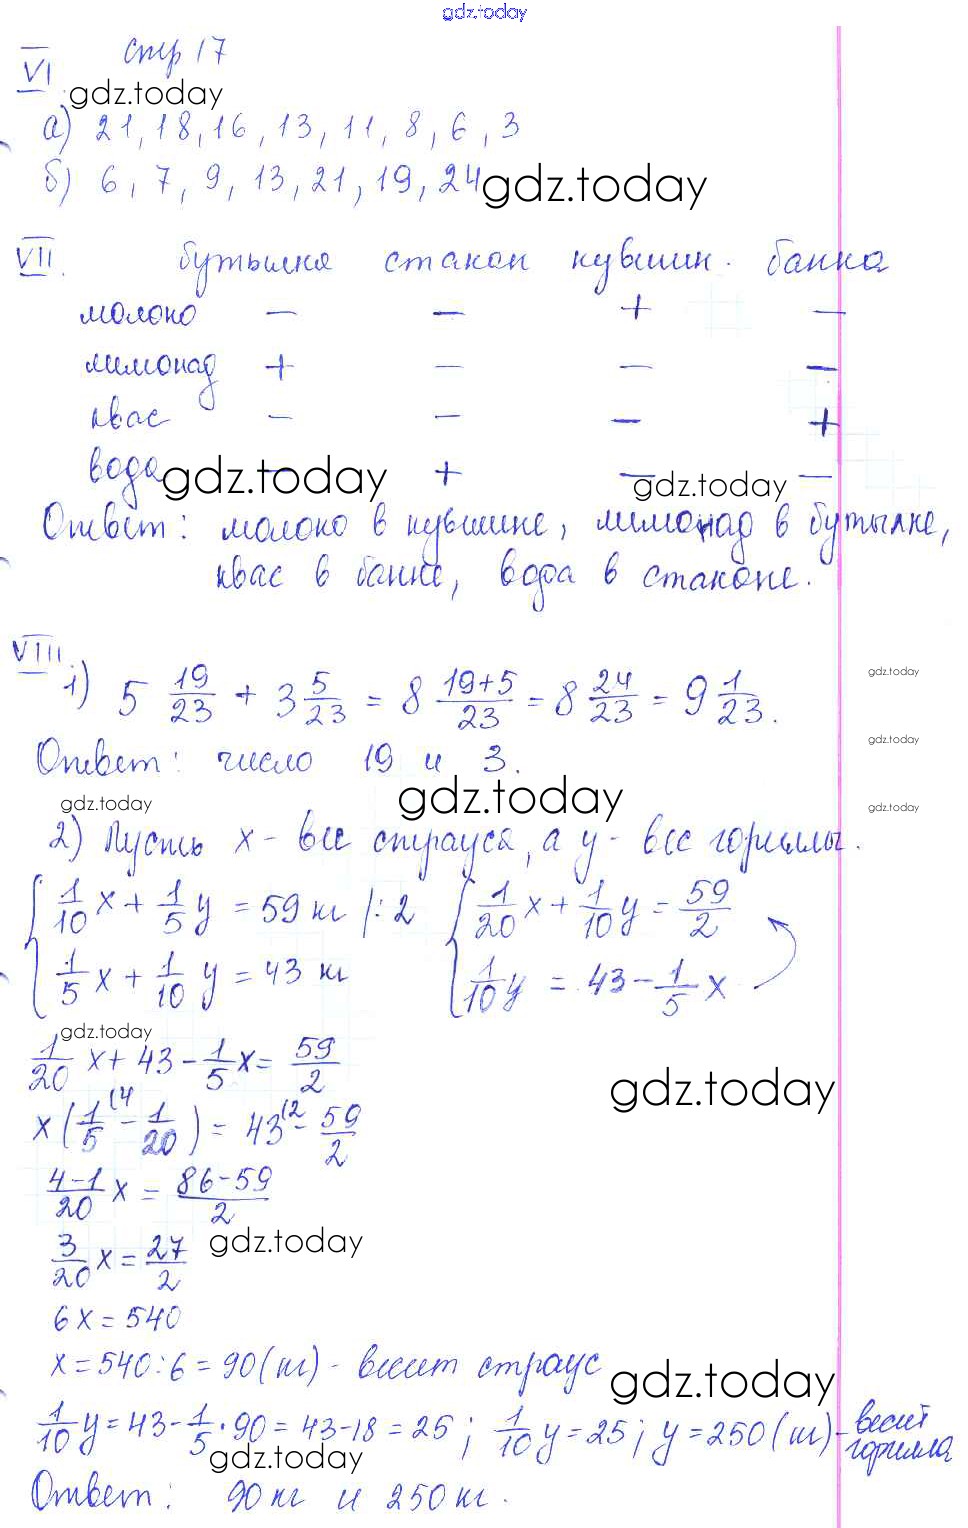 gdz.today
VI стр 17
gdz.today
а) 21, 18, 16, 13, 11, 8, 6, 3
б) 6, 7, 9, 13, 21, 19, 24 gdz.today
VII. бутылка стакан кувшин. банка
молоко — — + —
лимонад + — — —
квас — — — +
вода gdz.today — + — gdz.today —
Ответ: молоко в кувшине, лимонад в бутылке,
квас в банке, вода в стакане.
VIII.
1) 5 19/23 + 3 5/23 = 8 (19+5)/23 = 8 24/23 = 9 1/23.
gdz.today
gdz.today
Ответ: число 19 и 3.
gdz.today gdz.today gdz.today
2) Пусть x - вес страуса, а y - вес гориллы.
{ 1/10 x + 1/5 y = 59 кг /: 2 { 1/20 x + 1/10 y = 59/2
1/5 x + 1/10 y = 43 кг 1/10 y = 43 - 1/5 x
gdz.today
1/20 x + 43 - 1/5 x = 59/2
gdz.today
x (1/5 (4 - 1/20) = 43 (2 - 59/2
(4-1)/20 x = (86-59)/2
gdz.today
3/20 x = 27/2
6x = 540
x = 540 : 6 = 90 (кг) - весит страус
gdz.today
1/10 y = 43 - 1/5 · 90 = 43 - 18 = 25 ; 1/10 y = 25 ; y = 250 (кг) - весит горилла
gdz.today
Ответ: 90 кг и 250 кг.